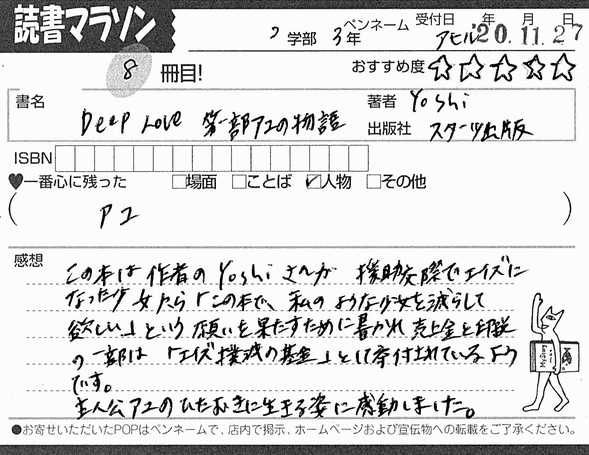 読書マラソン
学部 3年 ペンネーム アヒル 受付日 年 月 日
'20.11.27
8 冊目!
おすすめ度 ☆☆☆☆☆
書名 Deep Love 第一部アユの物語
著者 Yoshi
出版社 スターツ出版
ISBN
♥一番心に残った □場面 □ことば ☑人物 □その他
( アユ )
感想
この本は作者のYoshiさんが 援助交際でエイズに
なった少女から「この本で、私のような少女を減らして
欲しい」という願いを果たすために書かれ売上金と印税
の一部は「エイズ撲滅の基金」として寄付されているよう
です。
主人公アユのひたむきに生きる姿に感動しました。
●お寄せいただいたPOPはペンネームで、店内で掲示、ホームページおよび宣伝物への転載をご了承ください。